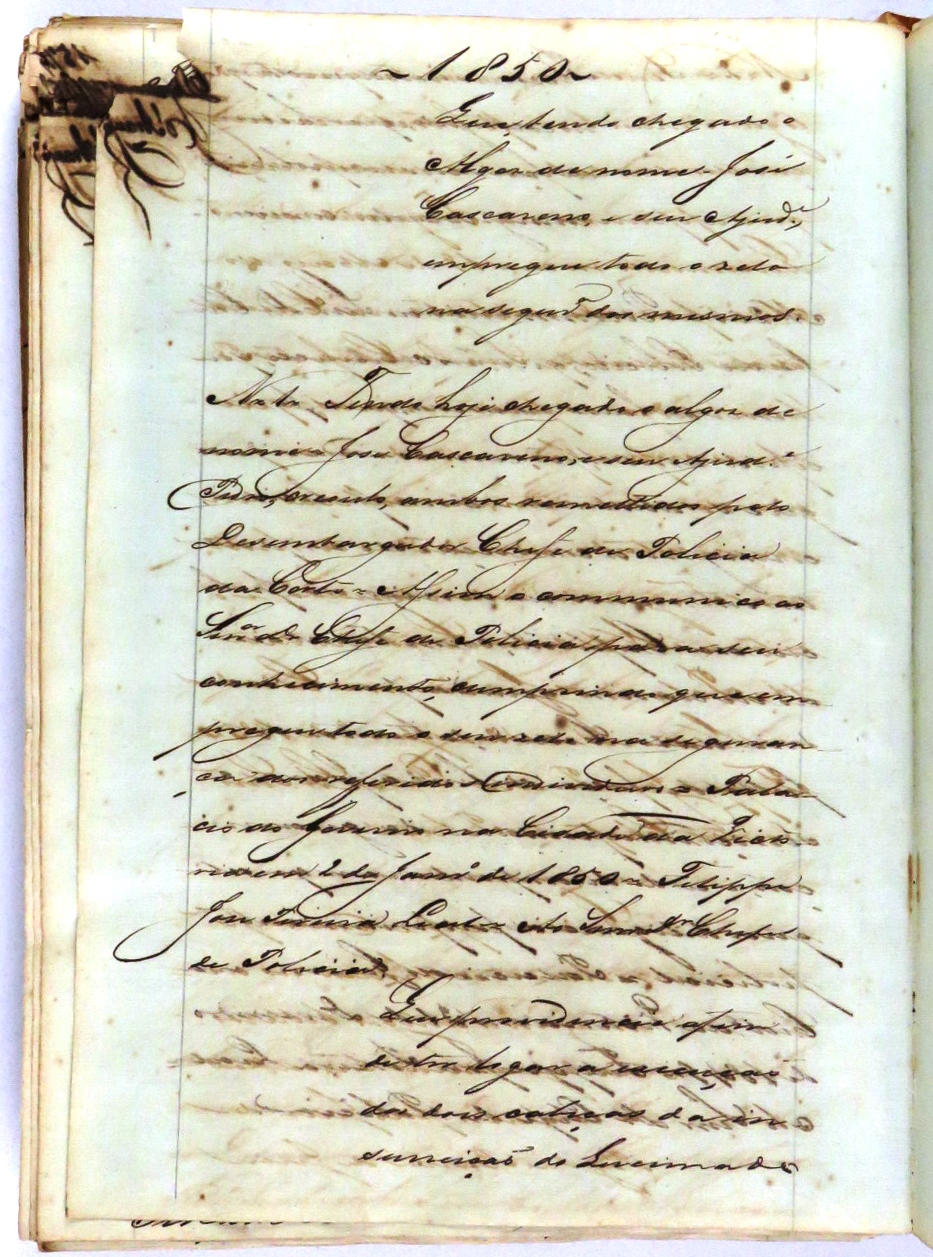 ~1850~
Que, tendo chegado o
Algoz de nome José
Cascareno, e seu Ajud.e,
empregue todo o zelo
na segur.ça dos mesmos.
N.º 1o Tendo hoje chegado o algoz de
nome José Cascareno, e seu Ajud.e
Pedro, ambos remettidos pelo
Desembargador Chefe de Policia
da Corte = Assim o communico ao
Sen.or d.r Chefe de Policia para seu
conhecimento, cumprindo que em
pregue todo o seu zelo na seguran
ça dos referidos individuos = Pala
cio do Governo na Cidade da Victo
ria em 2 de Janr.o de 1850 = Filippe
José Pereira Leal = Ao Senr. d.r Chefe
de Policia.
Que providencie afim
de ter logar a execução
dos dous cabeças da in
surreição do Queimado